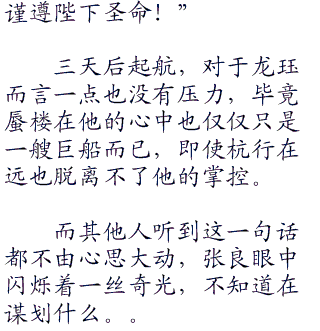 谨遵陛下圣命！”
三天后起航，对于龙珏
而言一点也没有压力，毕竟
蜃楼在他的心中也仅仅只是
一艘巨船而已，即使杭行在
远也脱离不了他的掌控。
而其他人听到这一句话
都不由心思大动，张良眼中
闪烁着一丝奇光，不知道在
谋划什么。。